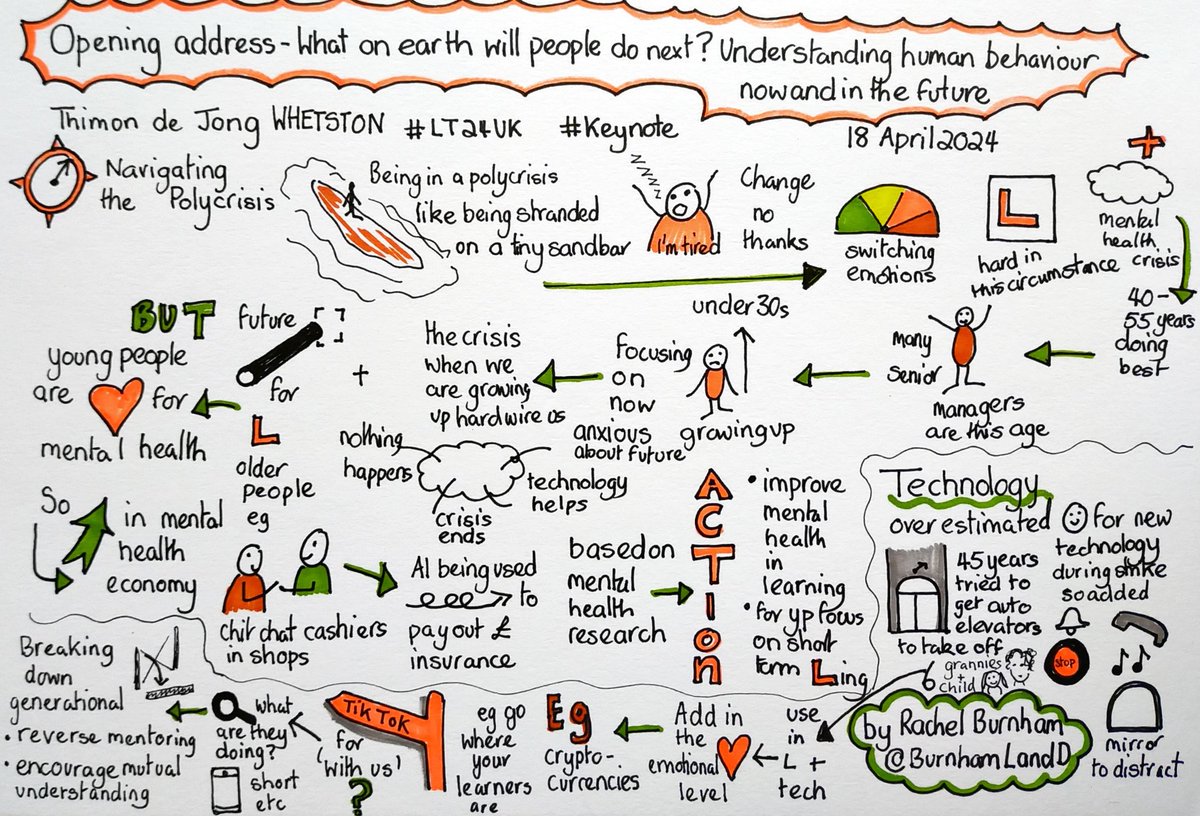 Opening address - What on earth will people do next? Understanding human behaviour
now and in the future
Thimon de Jong WHETSTON #LT24UK #Keynote
18 April 2024
Navigating
the Polycrisis
Being in a polycrisis
like being stranded
on a tiny sandbar
zzzzz
I'm tired
Change
no
thanks
switching
emotions
L
hard in
this circumstance
+
mental
health
crisis
40 -
55 years
doing
best
many
senior
managers
are this age
under 30s
growing up
Focusing
on
now
anxious
about future
the crisis
when we
are growing
up hardwire us
+
nothing
happens
technology
helps
crisis
ends
future
for
L
older
people
eg
BUT
young people
are
for
mental health
So
in mental
health
economy
chit chat cashiers
in shops
AI being used
to
pay out £
insurance
based on
mental
health
research
ACTIon
• improve
mental
health
in
learning
• for yp focus
on short
term Ling
Technology
over estimated
45 years
tried to
get auto
elevators
to take off
for new
technology
during strike
so added
stop
grannies
+
child
mirror
to distract
use
in
L +
tech
Add in
the
emotional
level
Eg
crypto-
currencies
eg go
where
your
learners
are
TikTok
for
'with us'
?
what
are they
doing?
short
etc
Breaking
down
generational
• reverse mentoring
• encourage mutual
understanding
by Rachel Burnham
@BurnhamLandD